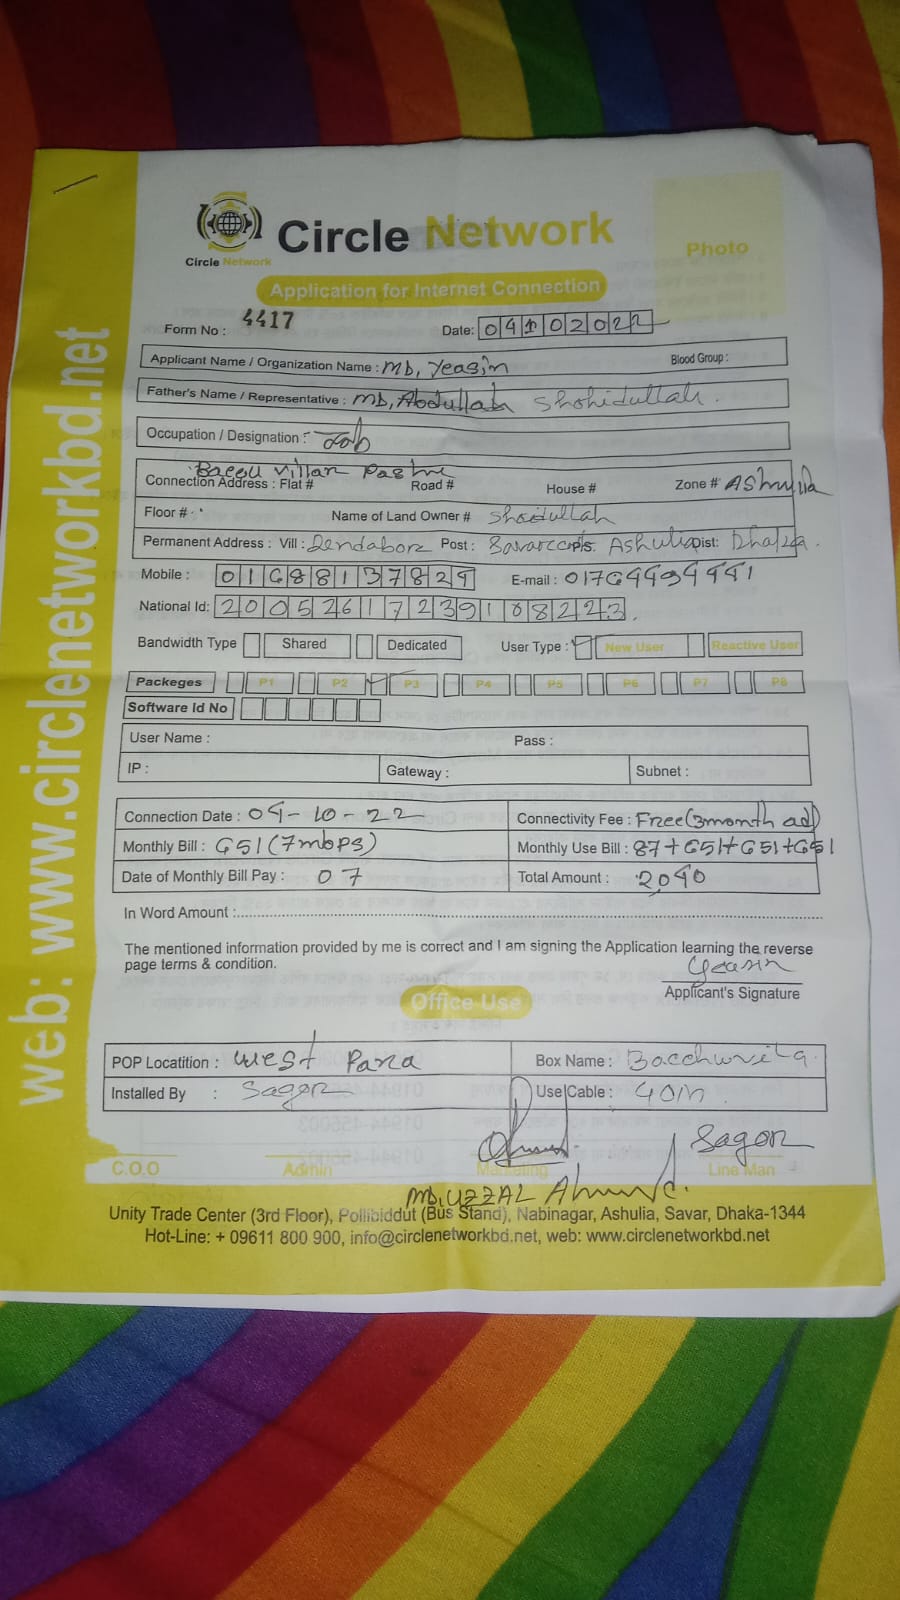 Circle Network
Circle Network
Photo
Application for Internet Connection
Form No : 4417
Date: 04102022
Applicant Name / Organization Name : MD, Yeasin
Blood Group :
Father's Name / Representative : MD, Abdullah Shohidullah.
Occupation / Designation : Job
Connection Address : Flat # Road # House # Zone # Ashulia
Floor # Name of Land Owner # Shoidullah
Permanent Address : Vill : Dendabor Post : P.s: Ashulia Dist: Dhaka.
Mobile : 01688137829 E-mail :
National Id: 20052617239108223
Bandwidth Type Shared Dedicated User Type : New User Reactive User
Packeges P1 P2 P3 P4 P5 P6 P7 P8
Software Id No
User Name : Pass :
IP : Gateway : Subnet :
Connection Date : 04-10-22 Connectivity Fee : Free (3month ad)
Monthly Bill : 651 (7mbps) Monthly Use Bill : 87+651+651+651
Date of Monthly Bill Pay : 07 Total Amount : 2040
In Word Amount :
The mentioned information provided by me is correct and I am signing the Application learning the reverse
page terms & condition.
Yeasin
Applicant's Signature
Office Use
POP Locatition : West Para Box Name :
Installed By : Sagor Use Cable : 40m
Sagor
C.O.O Admin Marketing Line Man
MD, UZZAL Ahmed.
Unity Trade Center (3rd Floor), Pollibiddut (Bus Stand), Nabinagar, Ashulia, Savar, Dhaka-1344
Hot-Line: + 09611 800 900, info@circlenetworkbd.net, web: www.circlenetworkbd.net
web: www.circlenetworkbd.net